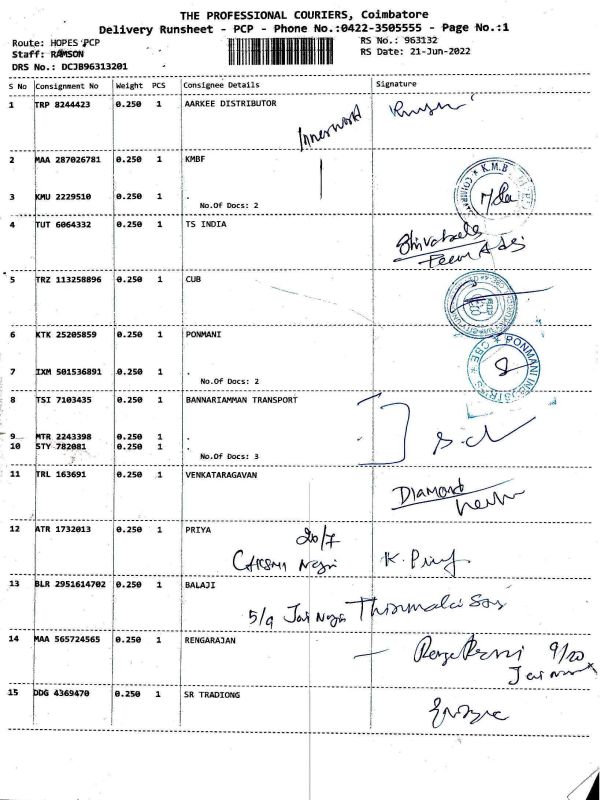 THE PROFESSIONAL COURIERS, Coimbatore
Delivery Runsheet - PCP - Phone No.:0422-3505555 - Page No.:1
Route: HOPES PCP RS No.: 963132
Staff: RAMSON RS Date: 21-Jun-2022
DRS No.: DCJB96313201
S No Consignment No Weight PCS Consignee Details Signature
1 TRP 8244423 0.250 1 AARKEE DISTRIBUTOR
Innerworld
2 MAA 287026781 0.250 1 KMBF
K.M.B
3 KMU 2229510 0.250 1 .
No.Of Docs: 2
4 TUT 6064332 0.250 1 TS INDIA
5 TRZ 113258896 0.250 1 CUB
6 KTK 25205859 0.250 1 PONMANI
PONMANI INDUSTRIES * CBE *
8
7 IXM 501536891 0.250 1 .
No.Of Docs: 2
8 TSI 7103435 0.250 1 BANNARIAMMAN TRANSPORT
9 MTR 2243398 0.250 1 .
10 STY 782081 0.250 1 .
No.Of Docs: 3
11 TRL 163691 0.250 1 VENKATARAGAVAN
Diamond
12 ATR 1732013 0.250 1 PRIYA
20/7
K. Priya
13 BLR 2951614702 0.250 1 BALAJI
5/9 Jai Nagar Thirumalai
14 MAA 565724565 0.250 1 RENGARAJAN
9/20
15 DDG 4369470 0.250 1 SR TRADIONG